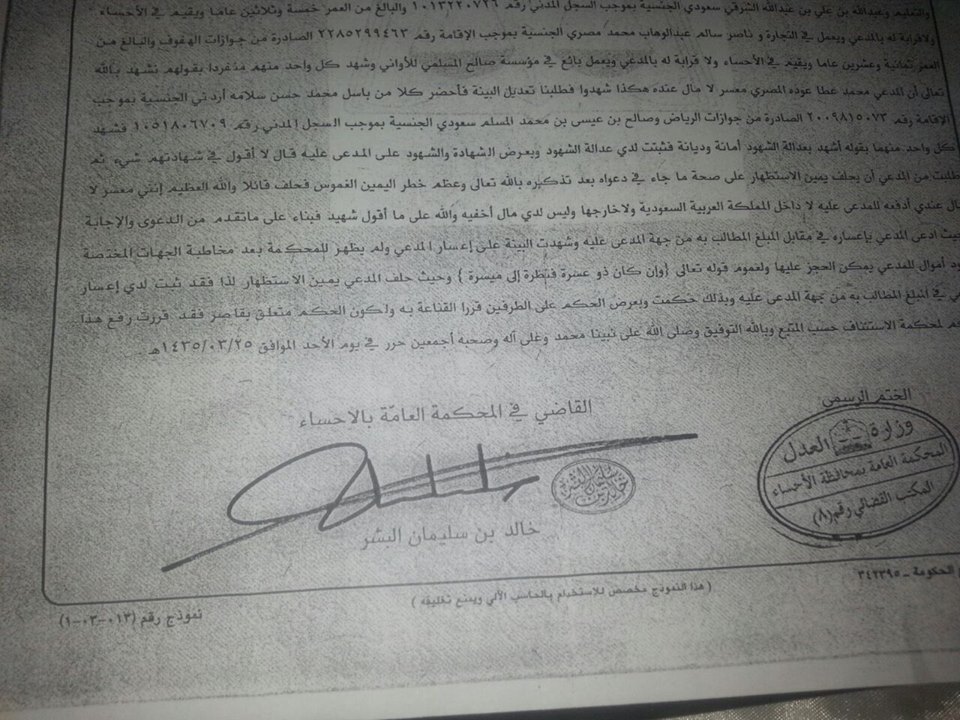 والتعليم وعبدالله بن علي بن عبدالله الشرقي سعودي الجنسية بموجب السجل المدني رقم ١٠١٣٢٢٠٧٢٦ والبالغ من العمر خمسة وثلاثين عاما ويقيم في الأحساء
ولاقرابة له بالمدعي ويعمل في التجارة و ناصر سالم عبدالوهاب محمد مصري الجنسية بموجب الإقامة رقم ٢٢٨٥٢٩٩٤٦٣ الصادرة من جوازات الهفوف والبالغ من
العمر ثمانية وعشرين عاما ويقيم في الأحساء ولا قرابة له بالمدعي ويعمل بائع في مؤسسة صالح المسلمي للأواني وشهد كل واحد منهم منفردا بقولهم نشهد بالله
تعالى أن المدعي محمد عطا عوده المصري معسر لا مال عنده هكذا شهدوا فطلبنا تعديل البينة فأحضر كلا من باسل محمد حسن سلامه أردني الجنسية بموجب
الإقامة رقم ٢٠٠٩٨١٥٠٧٣ الصادرة من جوازات الرياض وصالح بن عيسى بن محمد المسلم سعودي الجنسية بموجب السجل المدني رقم ١٠٥١٨٠٦٧٠٩ فشهد
كل واحد منهما بقوله أشهد بعدالة الشهود أمانة وديانة فثبتت لدي عدالة الشهود وبعرض الشهادة والشهود على المدعى عليه قال لا أقول في شهادتهم شيء ثم
طلبت من المدعي أن يحلف يمين الاستظهار على صحة ما جاء في دعواه بعد تذكيره بالله تعالى وعظم خطر اليمين الغموس فحلف قائلا والله العظيم إنني معسر لا
مال عندي أدفعه للمدعى عليه لا داخل المملكة العربية السعودية ولاخارجها وليس لدي مال أخفيه والله على ما أقول شهيد فبناء على ماتقدم من الدعوى والإجابة
حيث أدعى المدعي بإعساره في مقابل المبلغ المطالب به من جهة المدعى عليه وشهدت البينة على إعسار المدعي ولم يظهر للمحكمة بعد مخاطبة الجهات المختصة
أموال للمدعي يمكن الحجز عليها ولعموم قوله تعالى {وإن كان ذو عسرة فنظرة إلى ميسرة } وحيث حلف المدعي يمين الاستظهار لذا فقد ثبت لدي إعسار
في المبلغ المطالب به من جهة المدعى عليه وبذلك حكمت وبعرض الحكم على الطرفين قررا القناعة به ولكون الحكم متعلق بقاصر فقد قررت رفع هذا
لمحكمة الاستئناف حسب المتبع وبالله التوفيق وصلى الله على نبينا محمد وعلى آله وصحبه أجمعين حرر في يوم الأحد الموافق ١٤٣٥/٠٣/٢٥هـ
القاضي في المحكمة العامة بالاحساء
خالد بن سليمان البشر
الختم الرسمي
وزارة العدل
المحكمة العامة بمحافظة الأحساء
المكتب القضائي رقم (٨)
الحكومة - ٣٤٢٣٩٥
( هذا النموذج مخصص للاستخدام بالحاسب الآلي ويمنع تغليفه )
نموذج رقم (١٣-٠٣-٠١)